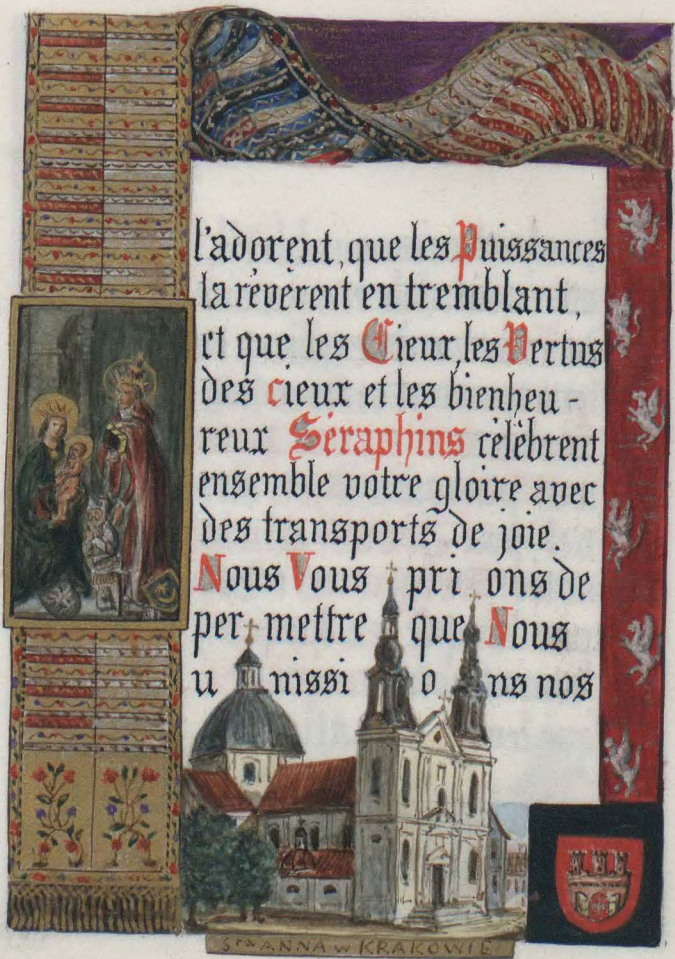 l'adorent, que les Puissances
la révèrent en tremblant,
et que les Cieux, les Vertus
des cieux et les bienheu-
reux Séraphins célèbrent
ensemble votre gloire avec
des transports de joie.
Nous Vous pri ons de
per mettre que Nous
u nissi o ns nos
Sta ANNA w KRAKOWIE